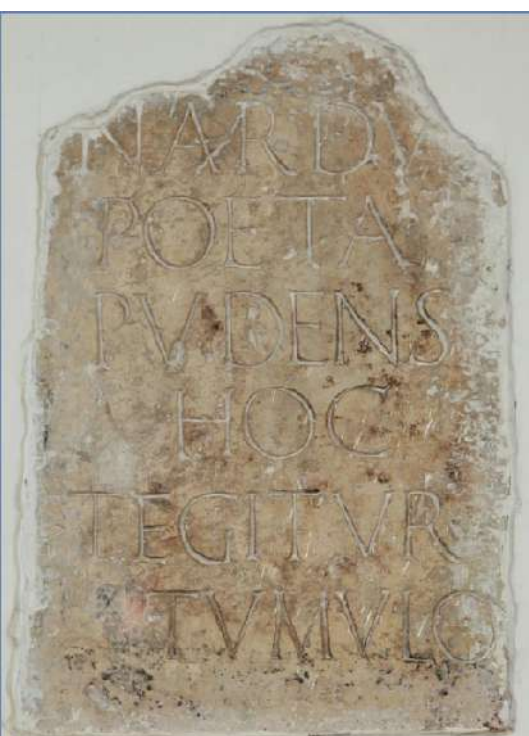 NARDV
POETA
PVDENS
HOC
TEGITVR
TVMVLO